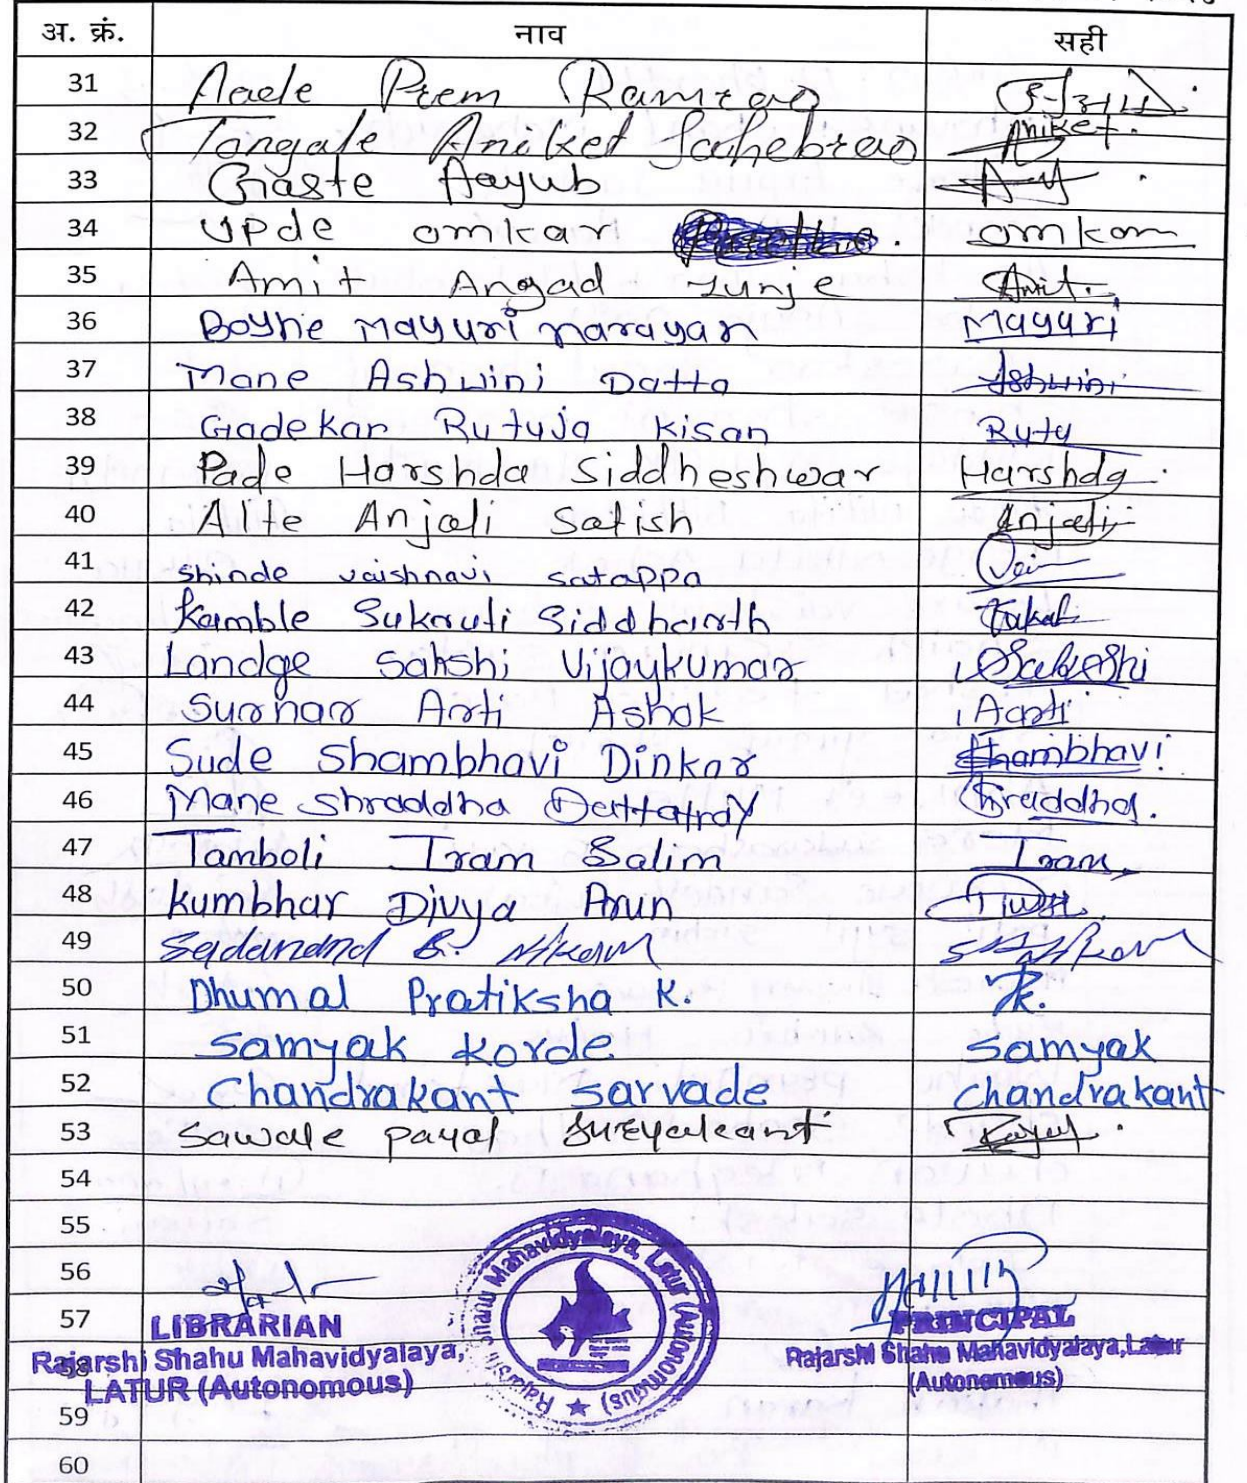 अ. क्रं. नाव सही
31 Aade Prem Ramrao
32 Tongale Aniket Sahebrao Aniket.
33 Gaste Aayub
34 Upde omkar omkar
35 Amit Angad Lunje Amit.
36 Boyne Mayuri narayan Mayuri
37 Mane Ashwini Datta Ashwini
38 Gadekar Rutuja Kisan Rutu
39 Pade Harshda Siddheshwar Harshda
40 Alte Anjali Satish Anjali
41 Shinde vaishnavi satappa Vai
42 Kamble Sukruti Siddharth
43 Landge Sakshi Vijaykumar Sakshi
44 Surnar Arti Ashok Aarti
45 Sude Shambhavi Dinkar Shambhavi
46 Mane Shraddha Dattatray Shraddha.
47 Tamboli Iram Salim Iram
48 Kumbhar Divya Arun Divya
49 Sadanand B. Nikam S Nikam
50 Dhumal Pratiksha K.
51 Samyak Korde Samyak
52 Chandrakant Sarvade Chandrakant
53 Sawale payal Sureyakant Payal
54
55
56
57
LIBRARIAN
Rajarshi Shahu Mahavidyalaya,
LATUR (Autonomous)
Rajarshi Shahu Mahavidyalaya, Latur (Autonomous)
PRINCIPAL
Rajarshi Shahu Mahavidyalaya, Latur
(Autonomous)
58
59
60